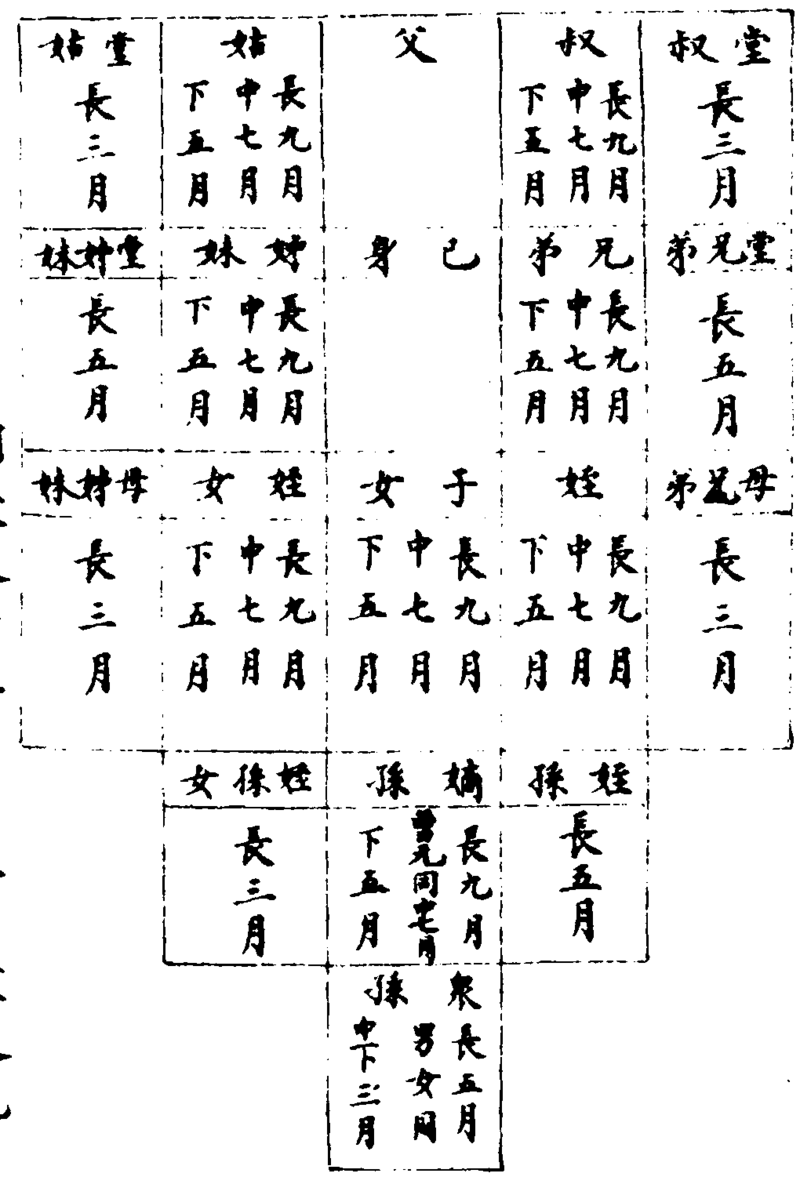 堂叔
長三月
叔
長九月
中七月
下五月
父
姑
長九月
中七月
下五月
堂姑
長三月
堂兄弟
長五月
兄弟
長九月
中七月
下五月
己身
姊妹
長九月
中七月
下五月
堂姊妹
長五月
母弟
長三月
姪
長九月
中七月
下五月
子女
長九月
中七月
下五月
姪女
長九月
中七月
下五月
母姊妹
長三月
姪孫
長五月
嫡孫
長九月
曾元同中七月
下五月
姪孫女
長三月
衆孫
長五月
男女同
中下三月